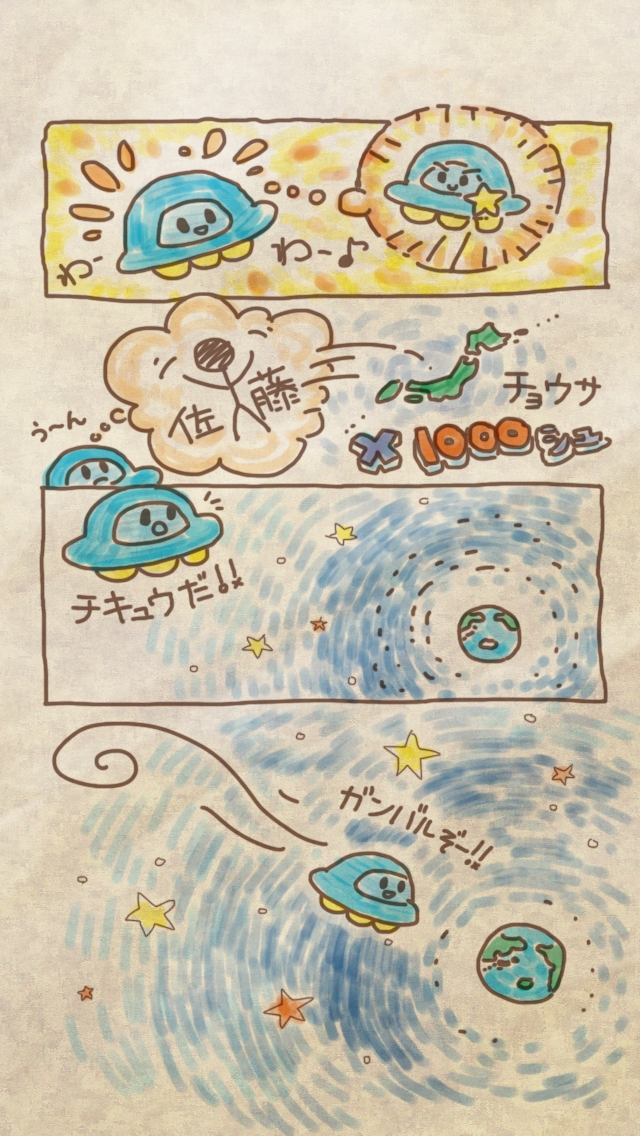 わー
わー♪
佐藤
チョウサ
う〜ん
×1000シュ
チキュウだ!!
ガンバルぞー!!